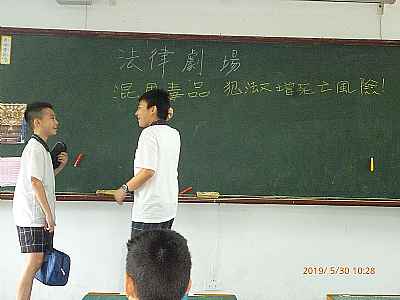 法律劇場
混用毒品 犯法又增死亡風險!
2019/5/30 10:28